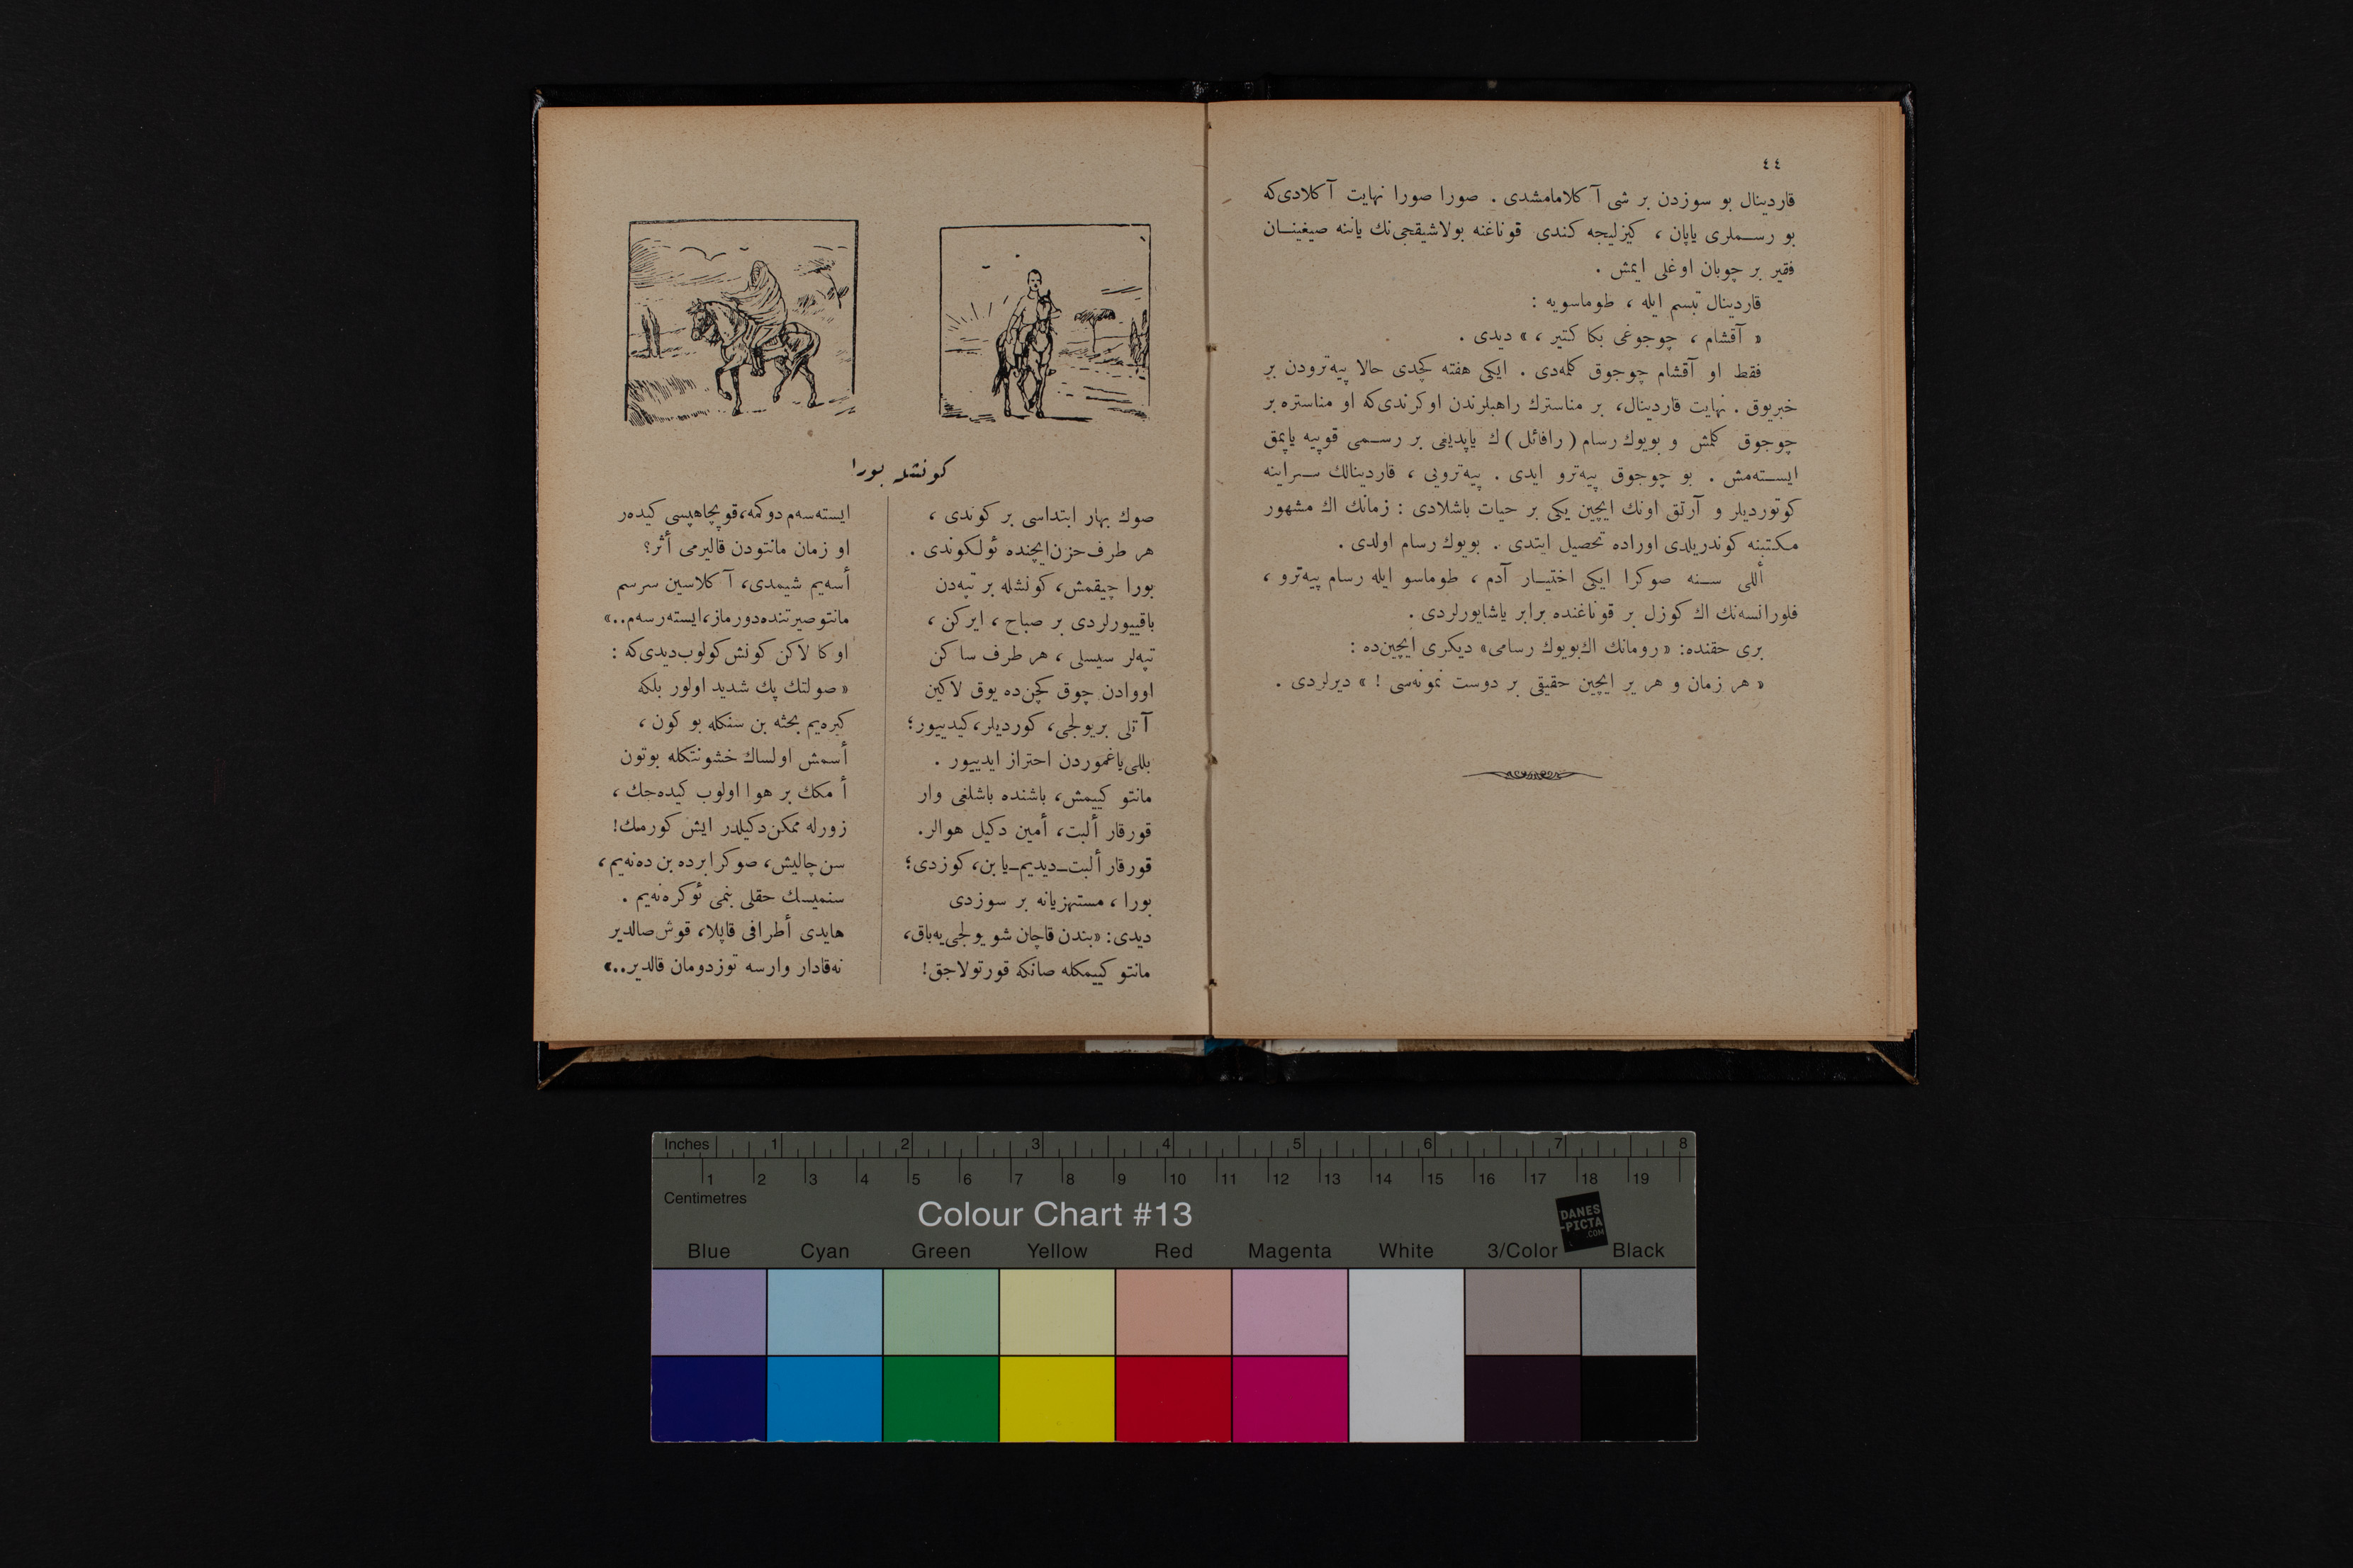 ٤٤
قاردینال بو سوزدن بر شی آ كلامامشدی . صورا صورا نهایت آ كلادی‌كه
بو رسملری یاپان ، كیزلیجه كندی قوناغنه بولاشیقجی‌نك یاننه صیغینان
فقیر بر چوبان اوغلی ایمش .
قاردینال تبسم ایله ، طوماسویه :
« آقشام ، چوجوغی بكا كتیر ، » دیدی .
فقط او آقشام چوجوق كلمه‌دی . ایكی هفته كچدی حالا پیه‌ترودن بر
خبریوق . نهایت قاردینال، بر مناسترك راهبلرندن اوكرندی‌كه او مناستره بر
چوجوق كلمش و بویوك رسام (رافائل)ك یاپدیغی بر رسمی قوپیه یاپمق
ایسته‌مش . بو چوجوق پیه‌ترو ایدی . پیه‌ترویی ، قاردینالك سراینه
كوتوردیلر و آرتق اونك ایچین یكی بر حیات باشلادی : زمانك اك مشهور
مكتبنه كوندریلدی اوراده تحصیل ایتدی . بویوك رسام اولدی .
أللی سنه صوكرا ایكی اختیار آدم ، طوماسو ایله رسام پیه‌ترو ،
فلورانسه‌نك اك كوزل بر قوناغنده برابر یاشایورلردی .
بری حقنده: « رومانك اك‌بویوك رسامی» دیكری ایچین‌ده :
« هر زمان و هر یر ایچین حقیقی بر دوست نمونه‌سی ! » دیرلردی .
كونشله بورا
صوك بهار ابتداسی بر كوندی ،
هر طرف حزن‌ایچنده ئولكوندی .
بورا چیقمش، كونشله بر تپه‌دن
باقییورلردی بر صباح ، ایركن ،
تپه‌لر سیسلی ، هر طرف ساكن
اووادن چوق كچن‌ده یوق لاكین
آتلی بریولجی، كوردیلر، كیدییور؛
بللی‌یاغموردن احتراز ایدییور .
مانتو كییمش، باشنده باشلغی وار
قورقار ألبت، أمین دكیل هوالر.
قورقار ألبت_دیدیم_یابن، كوزدی؛
بورا ، مستهزیانه بر سوزدی
دیدی: «بندن قاچان شو یولجی‌یه‌باق،
مانتو كییمكله صانكه قورتولاجق!
ایسته‌سه‌م دوكمه،قوپچاهپسی كیده‌ر
او زمان مانتودن قالیرمی أثر؟
أسه‌یم شیمدی، آ كلاسین سرسم
مانتوصیرتنده‌دورماز،ایسته‌رسه‌م..»
اوكا لاكن كونش‌كولوب‌دیدی‌كه :
« صولتك پك شدید اولور بلكه
كیره‌یم بحثه بن سنكله بو كون ،
أسمش اولساك خشونتكله بوتون
أمكك بر هوا اولوب كیده‌جك ،
زورله ممكن‌دكیلدر ایش كورمك!
سن‌چالیش، صوكرابرده بن ده‌نه‌یم ،
سنمیسك حقلی بنمی ئوكره‌نه‌یم .
هایدی أطرافی قاپلا، قوش‌صالدیر
نه‌قادار وارسه توزدومان قالدیر..»
Inches 1 2 3 4 5 6 7 8
1 2 3 4 5 6 7 8 9 10 11 12 13 14 15 16 17 18 19
Centimetres
Colour Chart #13
DANES
-PICTA
.COM
Blue Cyan Green Yellow Red Magenta White 3/Color Black